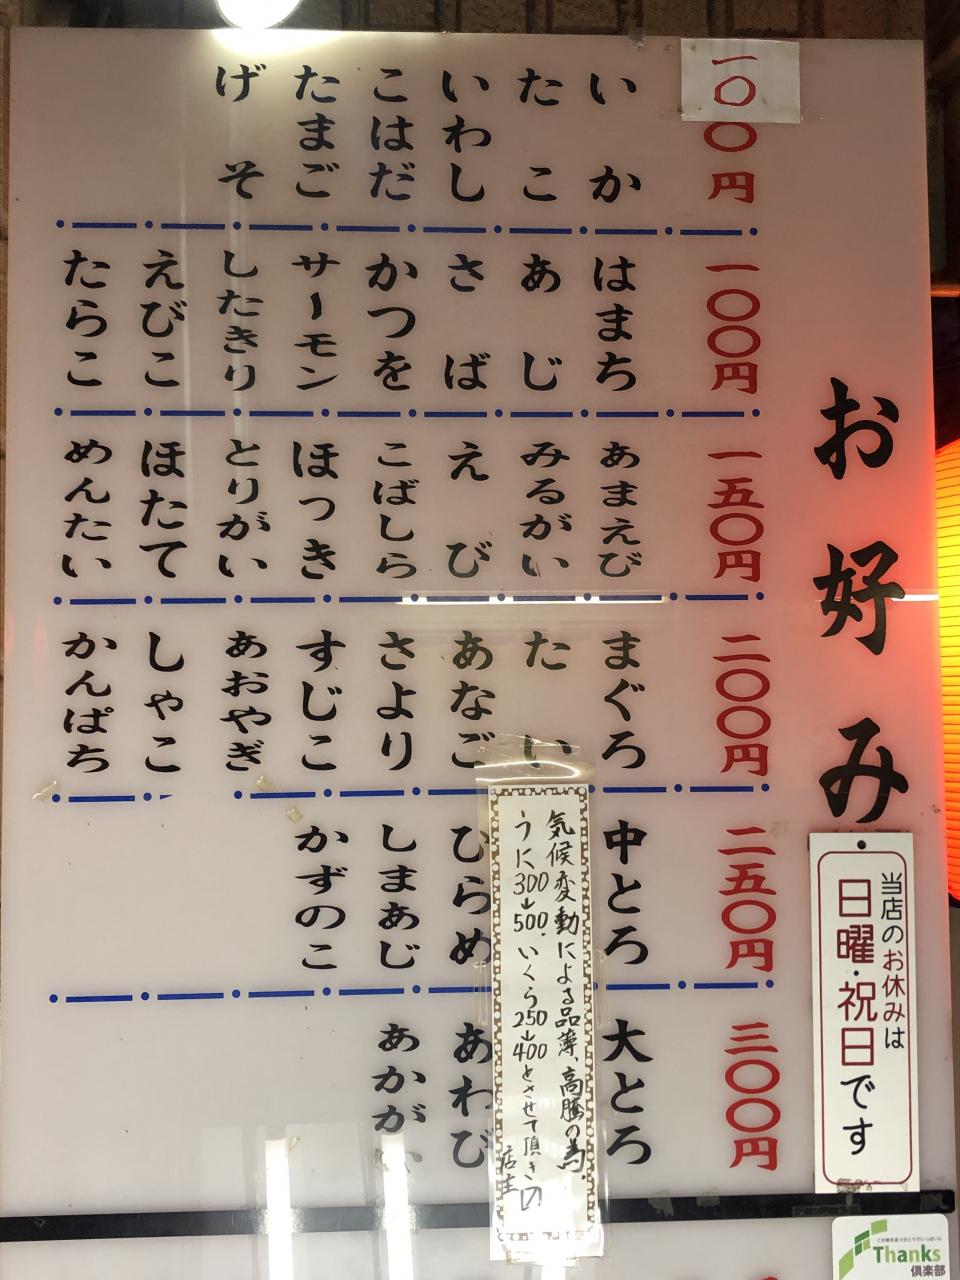 お好み
一〇〇円
いか
たこ
いわし
こはだ
たまご
げそ
一〇〇円
はまち
あじ
さば
かつを
サーモン
したきり
えびこ
たらこ
一五〇円
あまえび
みるがい
えび
こばしら
ほっき
とりがい
ほたて
めんたい
二〇〇円
まぐろ
たい
あなご
さより
すじこ
あおやぎ
しゃこ
かんぱち
二五〇円
中とろ
ひらめ
しまあじ
かずのこ
三〇〇円
大とろ
あわび
あかがい
気候変動による品薄、高騰の為、
うに300→500、いくら250→400とさせて頂き〼
店主
当店のお休みは
日曜・祝日です
Thanks
倶楽部